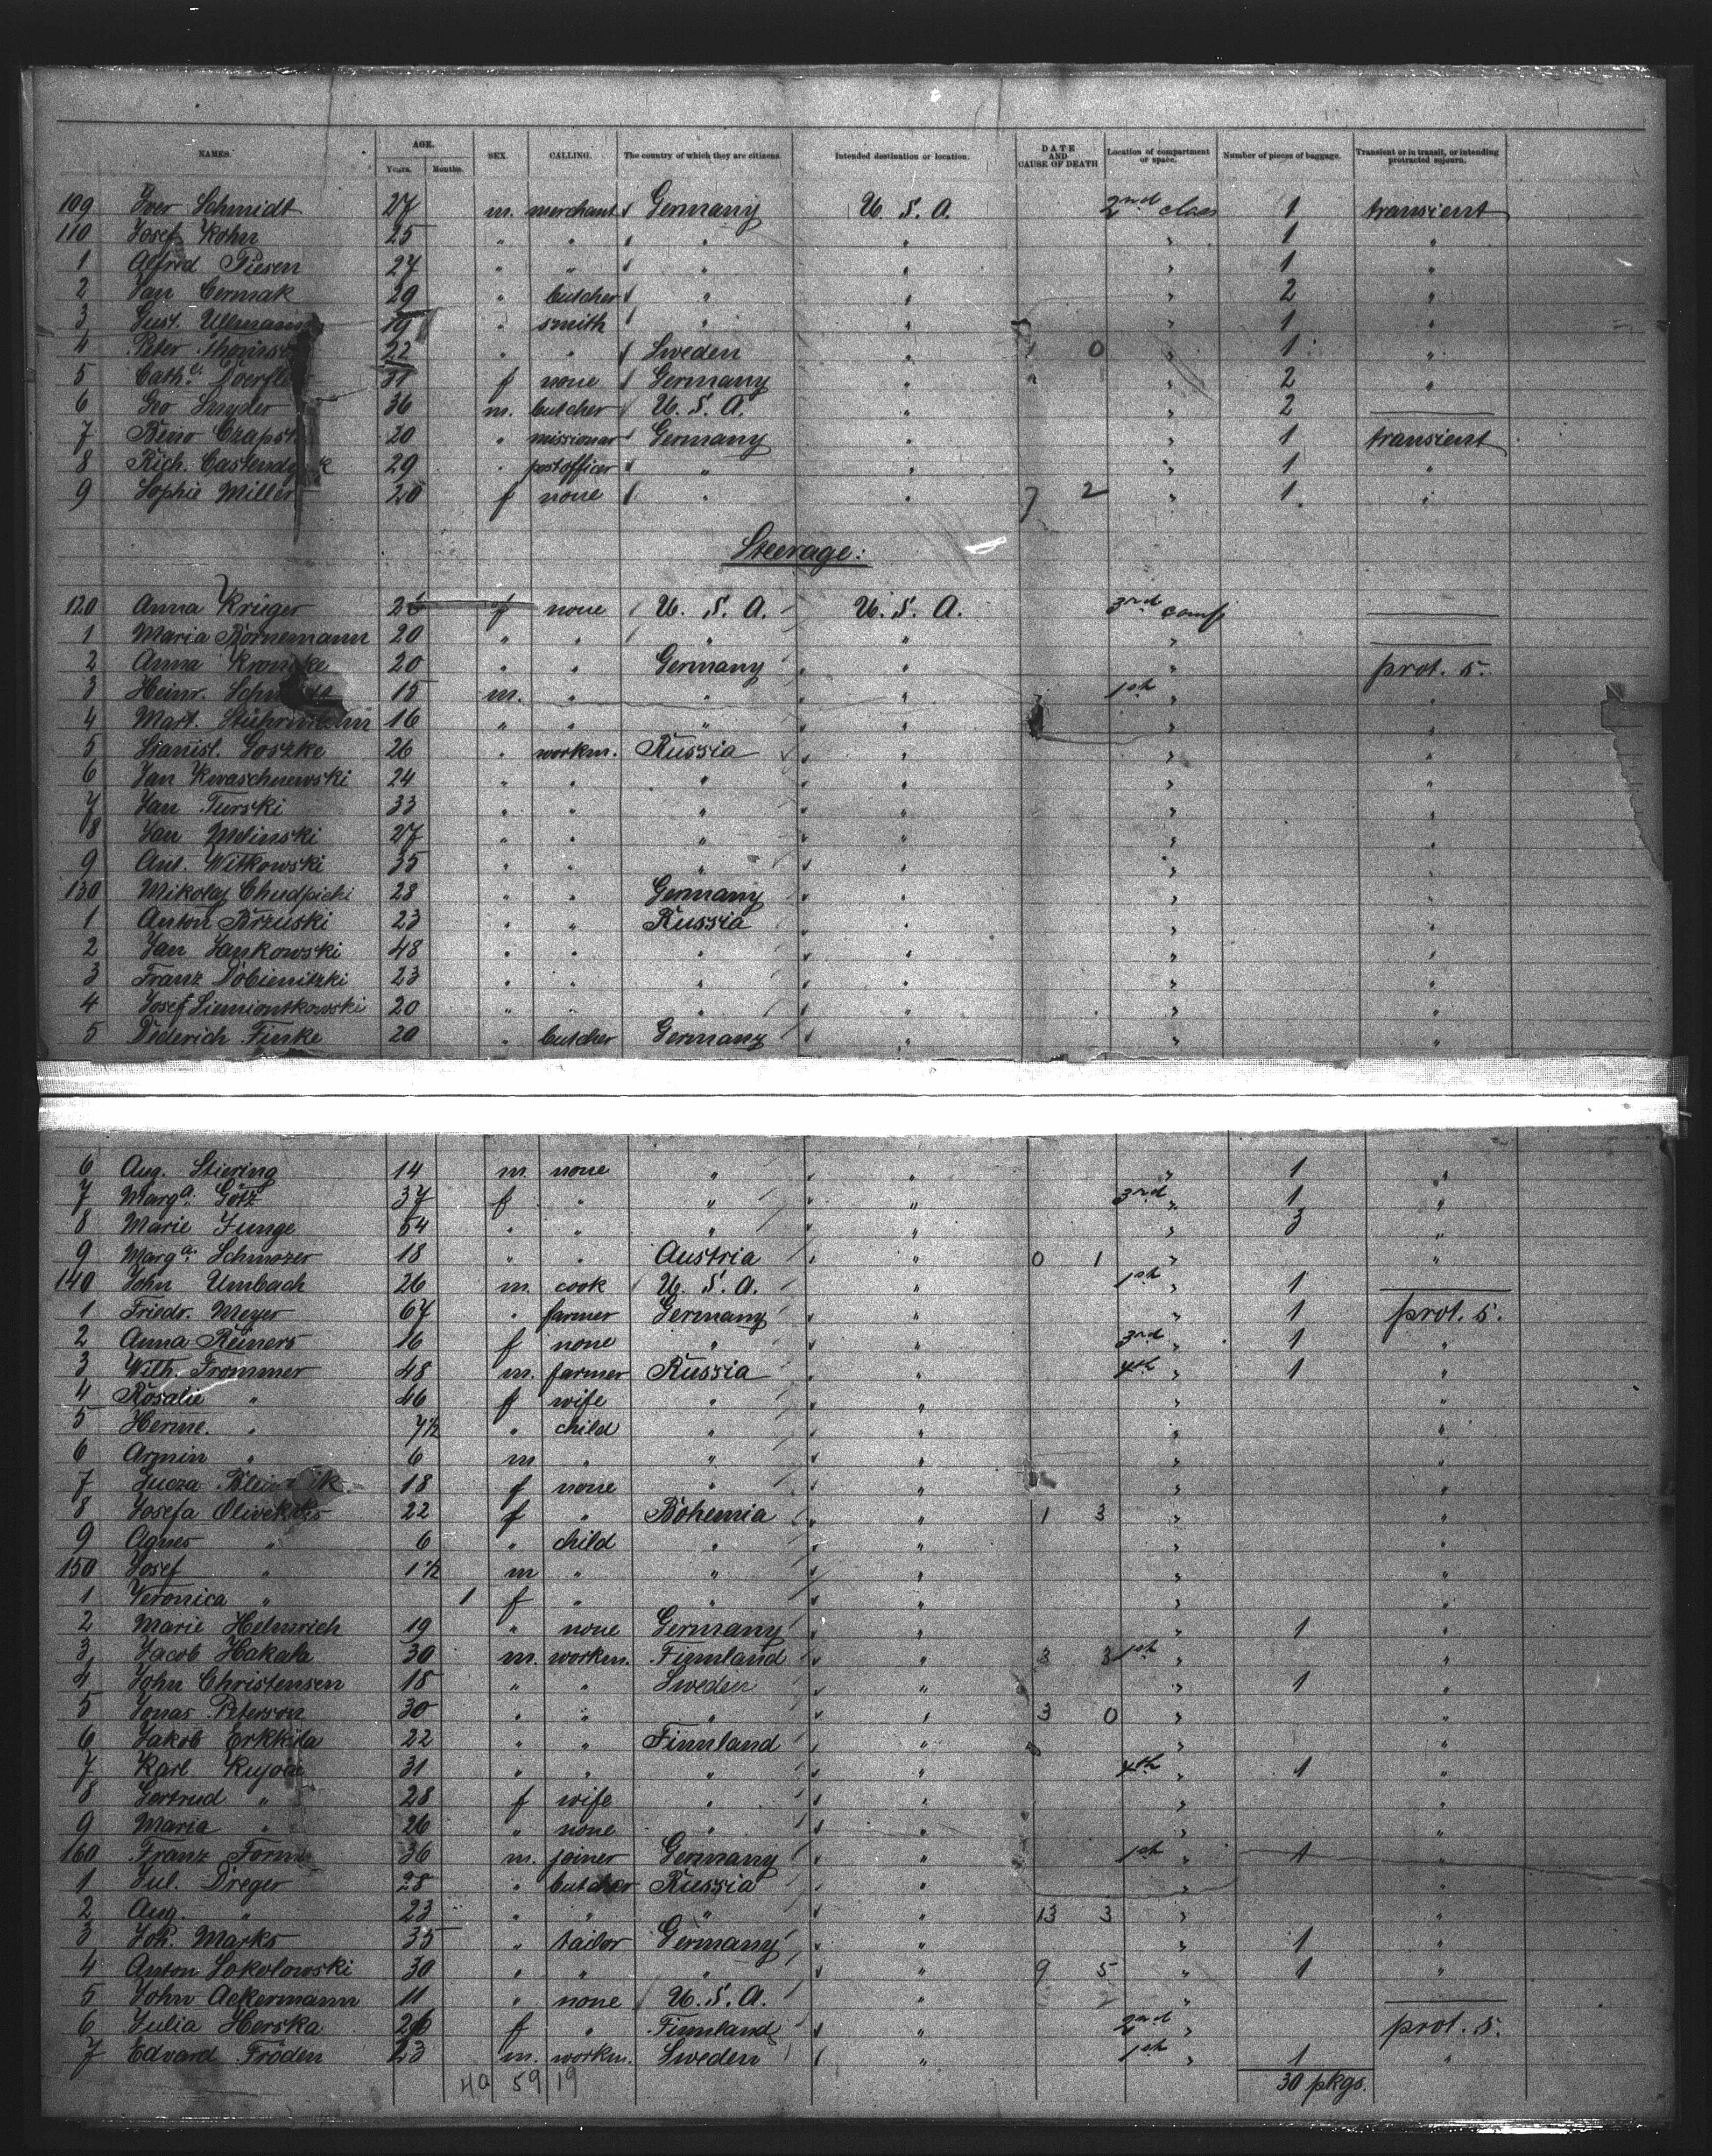 NAMES. AGE. Years. Months. SEX. CALLING. The country of which they are citizens. Intended destination or location. DATE AND CAUSE OF DEATH Location of compartment or space. Number of pieces of baggage. Transient or in transit, or intending protracted sojourn.
109 Iver Schmidt 27 m. merchant Germany U. S. A. 2nd class 1 transient
110 Josef Kohn 25 " " " " " 1 "
1 Alfred Giesen 27 " " " " " 1 "
2 Jan Cermak 29 " butcher " " " 2 "
3 Gust. Ullmann 19 " smith " " " 1 "
4 Peter 22 " " Sweden " 0 " 1 "
5 Cath.e 31 f none Germany " " 2 "
6 Geo Snyder 36 m. butcher U. S. A. " " 2
7 Beno 20 " missionar Germany " " 1 transient
8 Rich. 29 " postofficer " " " 1 "
9 Sophie Miller 20 f none " " 7 2 " 1 "
Steerage:
120 Anna Krüger f none U. S. A. U. S. A. 3rd comp
1 Maria Bornemann 20 " " " " "
2 Anna 20 " " Germany " " prot. s.
3 Heinr. Schmidt 15 m. " " " 1st " "
4 Mart. 16 " " " " " "
5 Stanisl. Goszke 26 " workm. Russia " " "
6 Jan Kwaschnewski 24 " " " " " "
7 Jan Turski 33 " " " " " "
8 Jan Melinski 27 " " " " " "
9 Ant. Witkowski 35 " " " " " "
130 Mikolaj 28 " " Germany " " "
1 Anton Brzuski 23 " " Russia " " "
2 Jan Jankowski 48 " " " " " "
3 Franz Dobienitzki 23 " " " " " "
4 Josef Siemiontkowski 20 " " " " " "
5 Diederich Finke 20 " butcher Germany " " "
6 Aug. Stiering 14 m. none " " " 1 "
7 Marga. Götz 37 f " " " 3rd " 1 "
8 Marie Junge 54 " " " " " 3 "
9 Marga. Schmozer 18 " " Austria " 0 1 " "
140 John Umbach 26 m. cook U. S. A. " 1st " 1
1 Friedr. Meyer 67 " farmer Germany " " 1 prot. s.
2 Anna Reiners 16 f none " " 3rd " 1 "
3 Wilh. Frommer 48 m. farmer Russia " 4th " 1 "
4 Rosalie " 46 f wife " " " "
5 Herme. " 7 1/2 " child " " " "
6 Armin " 6 m " " " " "
7 18 f none " " " "
8 Josefa 22 f " Bohemia " 1 3 " "
9 Agnes " 6 " child " " " "
150 Josef " 1 1/2 m " " " " "
1 Veronica " 1 f " " " " "
2 Marie Helmrich 19 " none Germany " " 1 "
3 Jacob Hakala 30 m. workm. Finnland " 3 3 1st " "
4 John Christensen 18 " " Sweden " " 1 "
5 Jonas Peterson 30 " " " " 3 0 " "
6 Jakob Erkkila 22 " " Finnland " " "
7 Karl 31 " " " " 4th " 1 "
8 Gertrud " 28 f wife " " " "
9 Maria " 26 " none " " " "
160 Franz 36 m. joiner Germany " 1st " 1 "
1 Jul. Dreger 28 " butcher Russia " " "
2 Aug. " 23 " " " " 13 3 " "
3 Joh. Marks 35 " tailor Germany " " 1 "
4 Anton Sokolowski 30 " " " " 9 5 " 1 "
5 John Ackermann 11 " none U. S. A. " "
6 Julia Herska 26 f " Finnland " 2nd " prot. s.
7 Edvard Fröden 23 m. workm. Sweden " 1st " 1 "
40 59 19 30 pkgs.